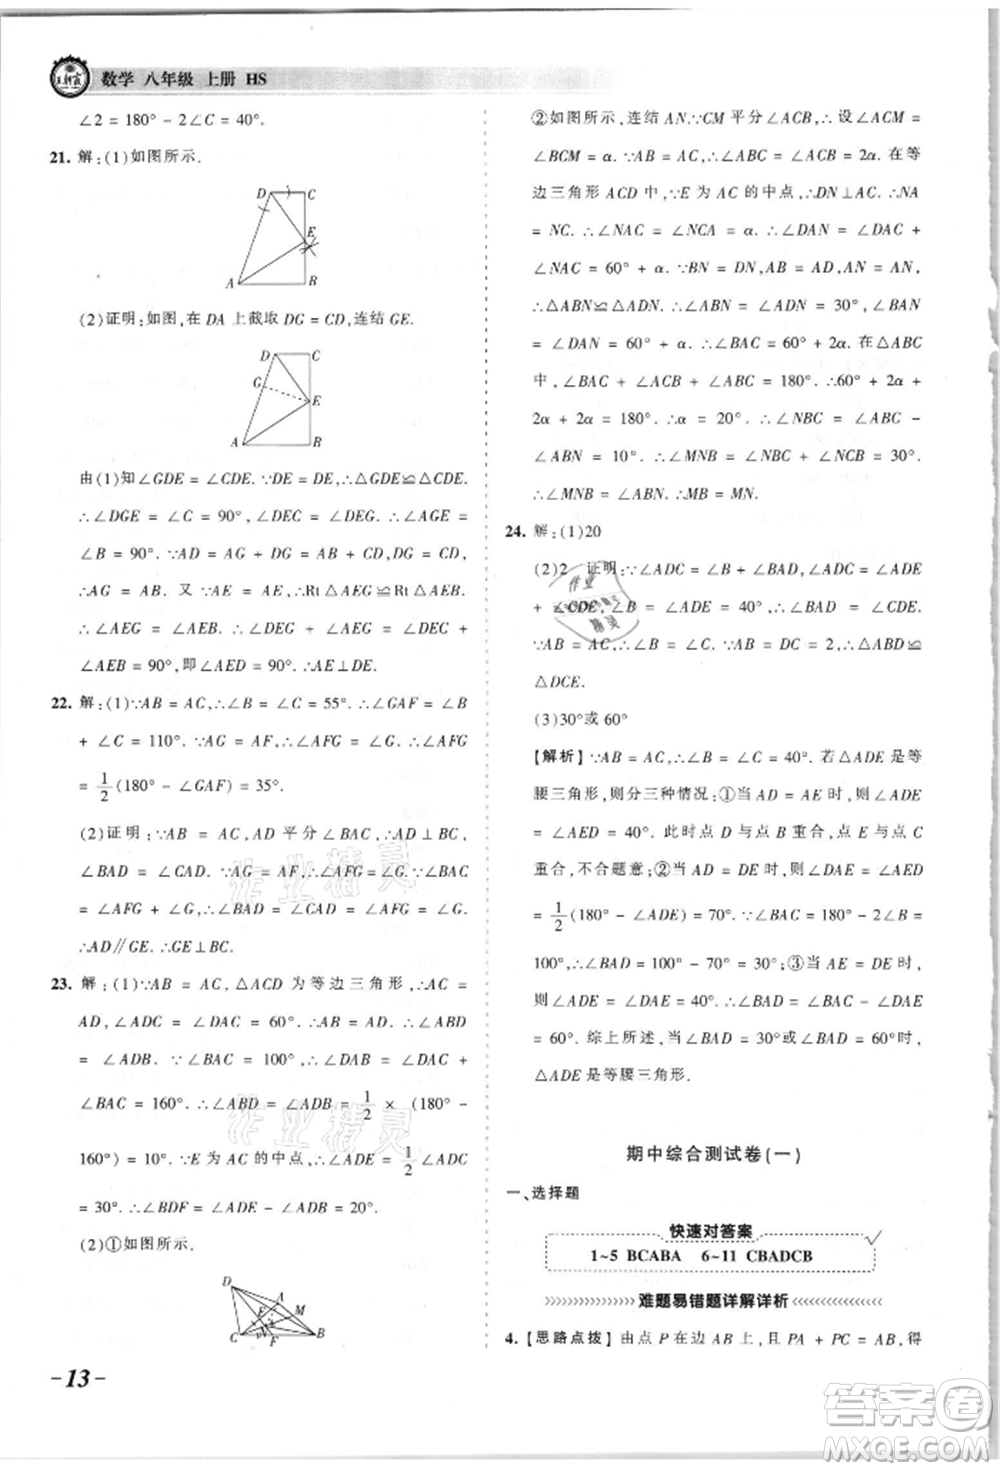 王朝霞
数学 八年级 上册 HS
∠2 = 180° - 2∠C = 40°.
21. 解:(1)如图所示.
D C
E
A B
(2)证明:如图,在 DA 上截取 DG = CD,连结 GE.
D C
G
E
A B
由(1)知∠GDE = ∠CDE. ∵DE = DE,∴△GDE≌△CDE.
∴∠DGE = ∠C = 90°,∠DEC = ∠DEG. ∴∠AGE =
∠B = 90°. ∵AD = AG + DG = AB + CD, DG = CD, ∴
AG = AB. 又∵AE = AE,∴Rt△AEG≌Rt△AEB.
∴∠AEG = ∠AEB. ∴∠DEG + ∠AEG = ∠DEC +
∠AEB = 90°,即∠AED = 90°. ∴AE⊥DE.
22. 解:(1)∵AB = AC,∴∠B = ∠C = 55°. ∴∠GAF = ∠B
+ ∠C = 110°. ∵AG = AF,∴∠AFG = ∠G. ∴∠AFG
= 1/2(180° - ∠GAF) = 35°.
(2)证明:∵AB = AC,AD 平分∠BAC,∴AD⊥BC,
∠BAD = ∠CAD. ∵AG = AF,∴∠AFG = ∠G. ∵∠BAC
= ∠AFG + ∠G,∴∠BAD = ∠CAD = ∠AFG = ∠G.
∴AD∥GE. ∴GE⊥BC.
23. 解:(1)∵AB = AC,△ACD为等边三角形,∴AC =
AD,∠DAC = ∠ADC = 60°. ∴AB = AD. ∴∠ABD
= ∠ADB. ∵∠BAC = 100°, ∴∠BAD = ∠DAC +
∠BAC = 160°. ∴∠ABD = ∠ADB = 1/2 × (180° -
160°) = 10°. ∵E 为 AC 的中点,∴∠ADE = 1/2∠ADC
= 30°. ∴∠BDF = ∠ADE - ∠ADB = 20°.
(2)①如图所示.
D
A
F
E M
N
C B
-13-
②如图所示,连结 AN.∵CM平分∠ACB,∴设∠ACM =
∠BCM = α. ∵AB = AC,∴∠ABC = ∠ACB = 2α. 在等
边三角形 ACD 中,∵E 为 AC 的中点,∴DN⊥AC. ∴NA
= NC. ∴∠NAC = ∠NCA = α. ∴∠DAN = ∠DAC +
∠NAC = 60° + α. ∵BN = DN,AB = AD,AN = AN,
∴△ABN≌△ADN. ∴∠ABN = ∠ADN = 30°,∠BAN
= ∠DAN = 60° + α. ∴∠BAC = 60° + 2α. 在△ABC
中,∠BAC + ∠ACB + ∠ABC = 180°. ∴60° + 2α +
2α + 2α = 180°. ∴α = 20°. ∴∠NBC = ∠ABC -
∠ABN = 10°. ∴∠MNB = ∠NBC + ∠NCB = 30°.
∴∠MNB = ∠ABN. ∴MB = MN.
24. 解:(1)20
(2)2 证明:∵∠ADC = ∠B + ∠BAD = ∠ADE
+ ∠CDE,∠B = ∠ADE = 40°,∴∠BAD = ∠CDE.
∵AB = AC,∴∠B = ∠C. ∵AB = DC = 2,∴△ABD≌
△DCE.
(3)30°或 60°
【解析】∵AB = AC,∴∠B = ∠C = 40°. 若△ADE 是等
腰三角形,则分三种情况:①当 AD = AE 时,∠ADE =
∠AED = 40°. 此时点 D 与点 B 重合,点 E 与点 C
重合,不合题意;②当 AD = DE 时,∠DAE = ∠AED
= 1/2(180° - ∠ADE) = 70°. ∵∠BAC = 180° - 2∠B =
100°,∴∠BAD = ∠BAC - ∠DAE = 30°;③当 AE = DE 时,
则∠ADE = ∠DAE = 40°. ∴∠BAD = ∠BAC - ∠DAE
= 60°. 综上所述,当∠BAD = 30°或∠BAD = 60°时,
△ADE 是等腰三角形.
期中综合测试卷(一)
一、选择题
快速对答案
1~5 BCABA 6~11 CBADCB
难题易错题详解详析
4. 【思路点拨】由点 P 在边 AB 上,且 PA + PC = AB,得
作业精灵
作业精灵
作业
精灵
答案圈
MXQE.COM